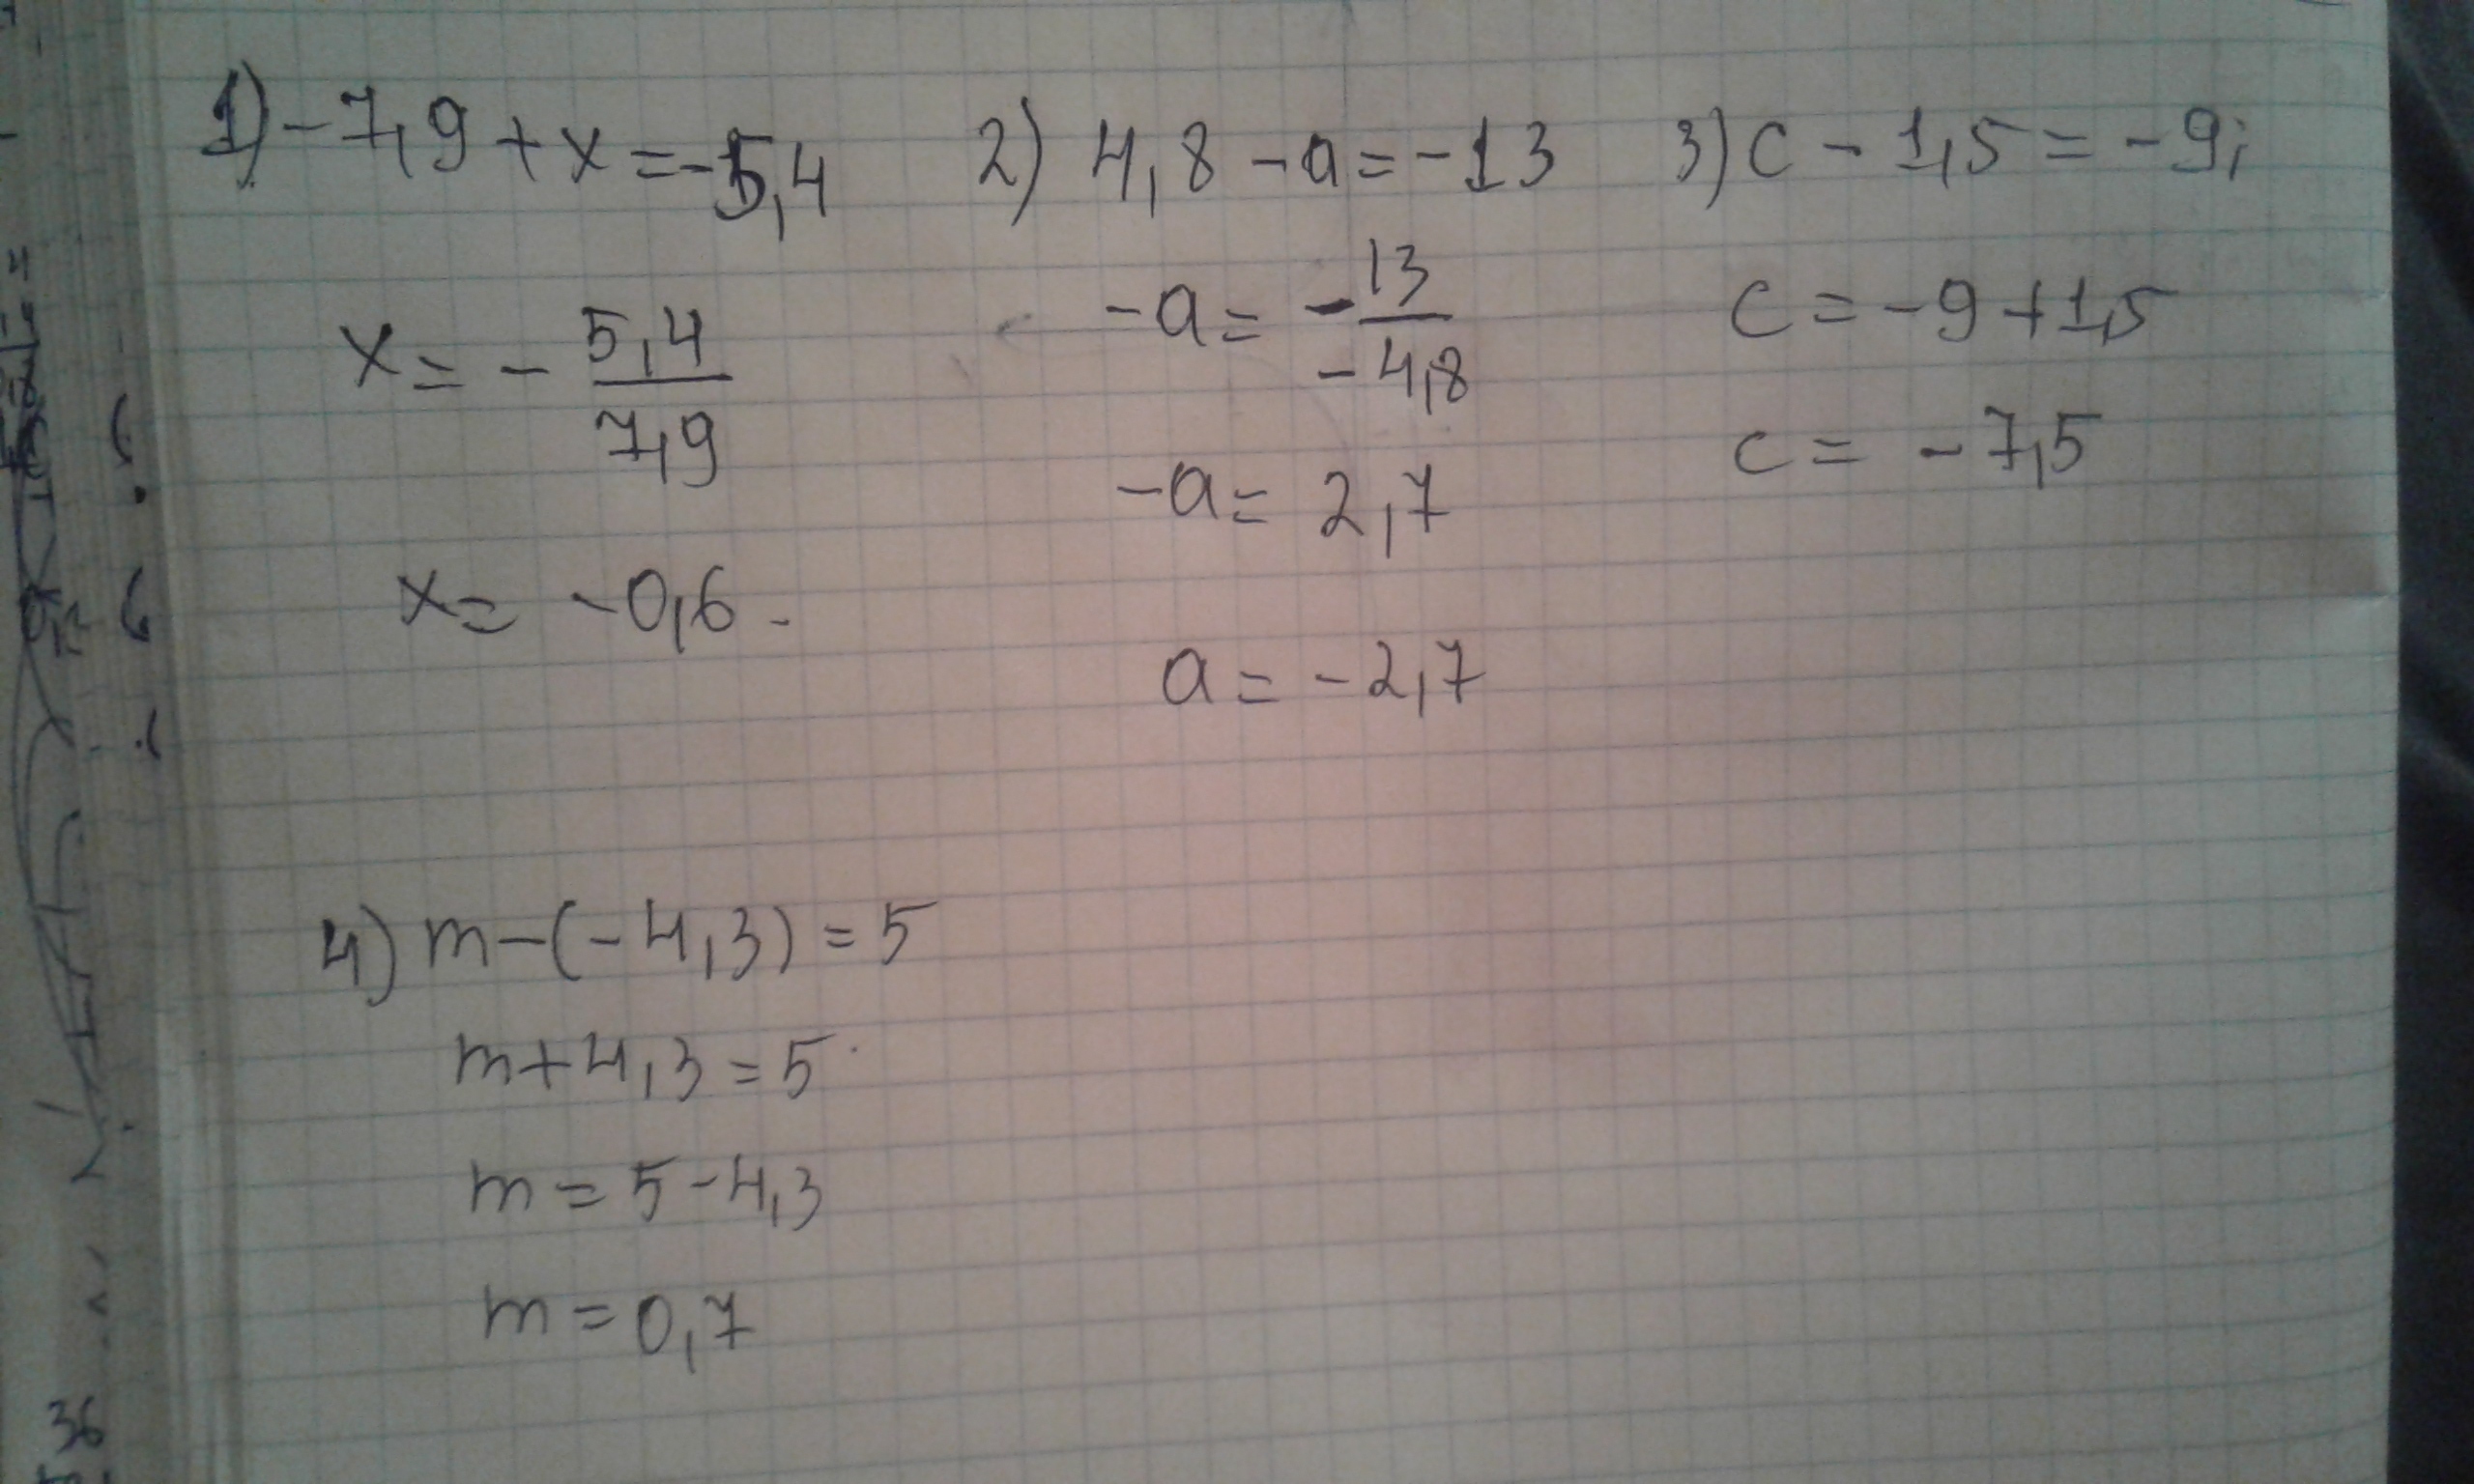 1) -7,9 + x = -5,4
x = - 5,4 / 7,9
x = -0,6.
2) 4,8 - a = -13
-a = -13 / -4,8
-a = 2,7
a = -2,7
3) c - 1,5 = -9;
c = -9 + 1,5
c = -7,5
4) m - (-4,3) = 5
m + 4,3 = 5
m = 5 - 4,3
m = 0,7
36